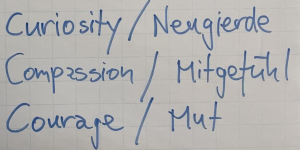 Curiosity / Neugierde
Compassion / Mitgefühl
Courage / Mut